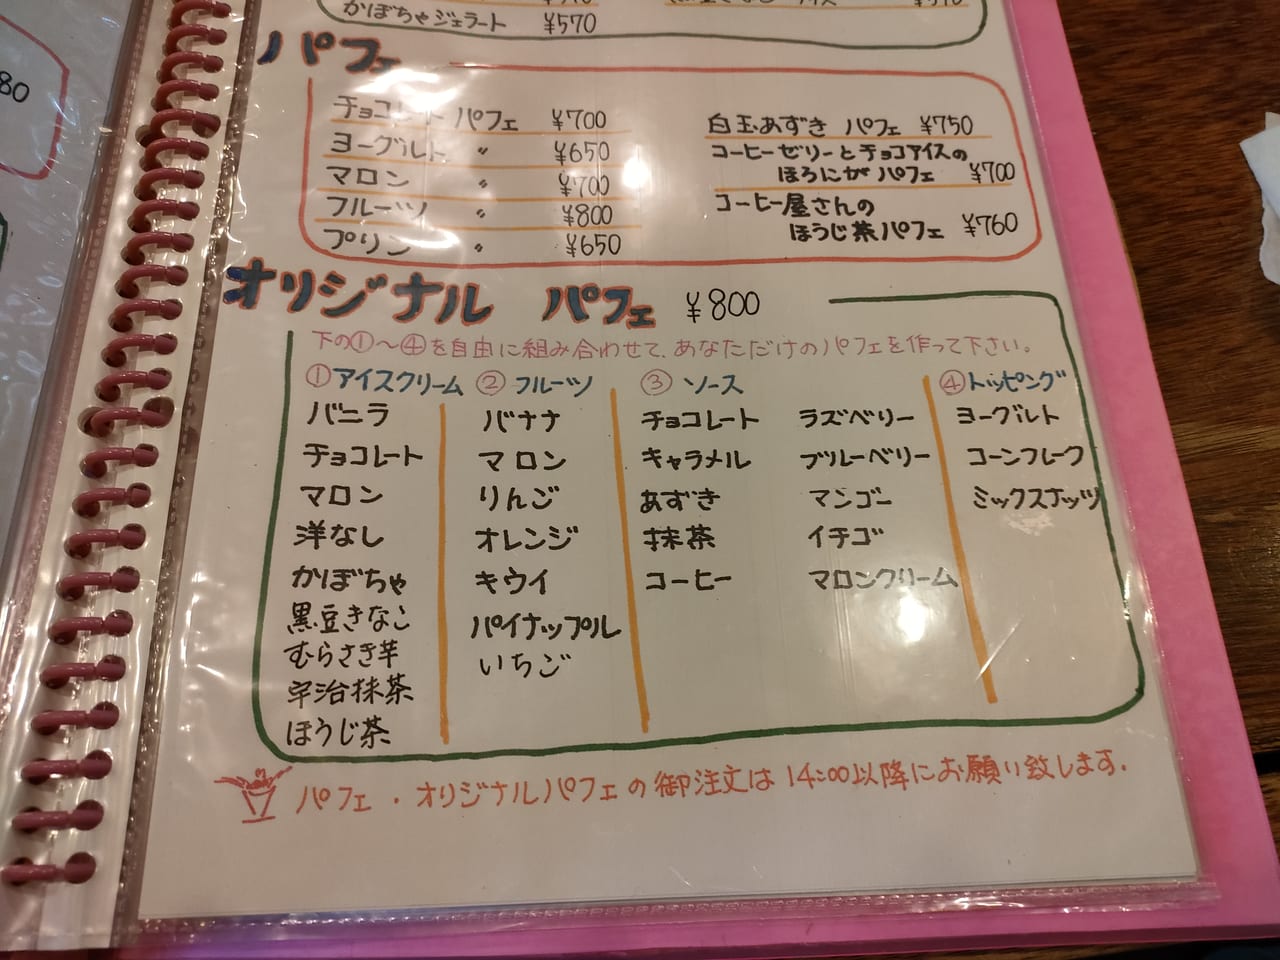 かぼちゃジェラート ¥570
パフェ
チョコレート パフェ ¥700
ヨーグルト 〃 ¥650
マロン 〃 ¥700
フルーツ 〃 ¥800
プリン 〃 ¥650
白玉あずき パフェ ¥750
コーヒーゼリーとチョコアイスの
ほろにがパフェ ¥700
コーヒー屋さんの
ほうじ茶パフェ ¥760
オリジナル パフェ ¥800
下の①～④を自由に組み合わせて、あなただけのパフェを作って下さい。
①アイスクリーム
バニラ
チョコレート
マロン
洋なし
かぼちゃ
黒豆きなこ
むらさき芋
宇治抹茶
ほうじ茶
②フルーツ
バナナ
マロン
りんご
オレンジ
キウイ
パイナップル
いちご
③ソース
チョコレート
キャラメル
あずき
抹茶
コーヒー
ラズベリー
ブルーベリー
マンゴー
イチゴ
マロンクリーム
④トッピング
ヨーグルト
コーンフレーク
ミックスナッツ
パフェ・オリジナルパフェの御注文は14:00以降にお願い致します.